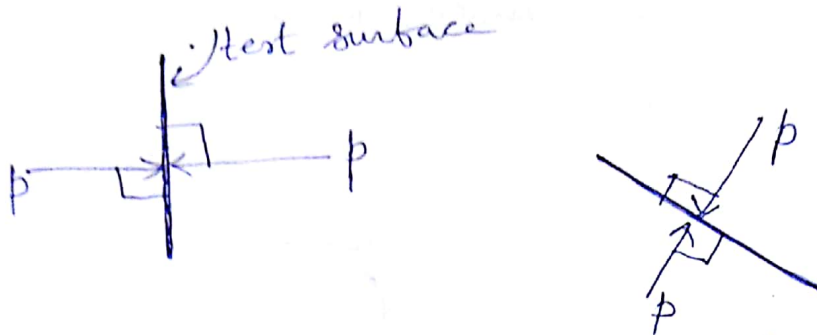 test surface
p
p
p
p